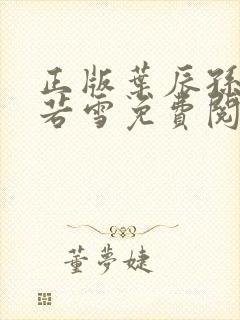 正版葉辰孫
若雪免費閱
董夢婕